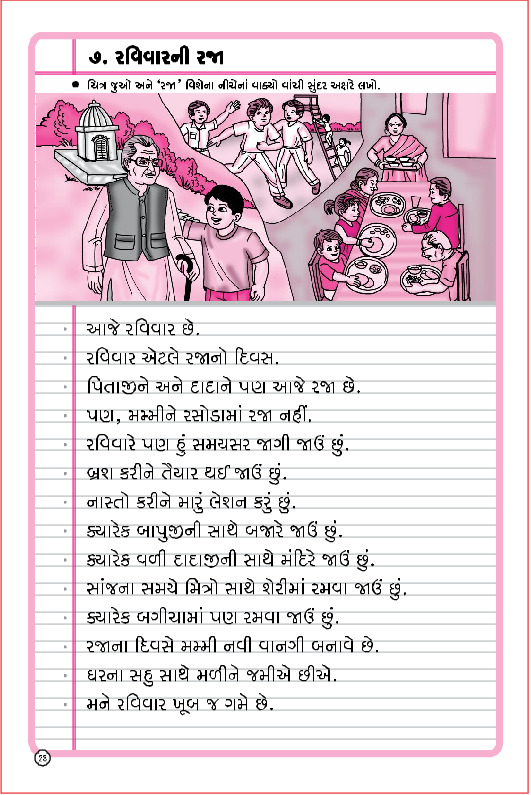 ૭. રવિવારની રજા
● ચિત્ર જુઓ અને ‘રજા’ વિશેના નીચેનાં વાક્યો વાંચી સુંદર અક્ષરે લખો.
• આજે રવિવાર છે.
• રવિવાર એટલે રજાનો દિવસ.
• પિતાજીને અને દાદાને પણ આજે રજા છે.
• પણ, મમ્મીને રસોડામાં રજા નહીં.
• રવિવારે પણ હું સમયસર જાગી જાઉં છું.
• બ્રશ કરીને તૈયાર થઈ જાઉં છું.
• નાસ્તો કરીને મારું લેશન કરું છું.
• ક્યારેક બાપુજીની સાથે બજારે જાઉં છું.
• ક્યારેક વળી દાદાજીની સાથે મંદિરે જાઉં છું.
• સાંજના સમયે મિત્રો સાથે શેરીમાં રમવા જાઉં છું.
• ક્યારેક બગીચામાં પણ રમવા જાઉં છું.
• રજાના દિવસે મમ્મી નવી વાનગી બનાવે છે.
• ઘરના સહુ સાથે મળીને જમીએ છીએ.
• મને રવિવાર ખૂબ જ ગમે છે.